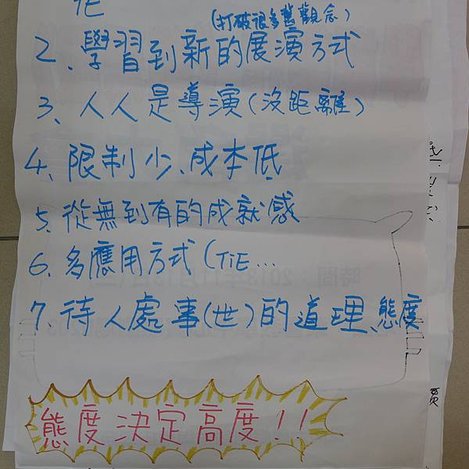 (打破很多舊觀念)
2、學習到新的展演方式
3、人人是導演(沒距離)
4、限制少、成本低
5、從無到有的成就感
6、多應用方式(TiE...
7、待人處事(世)的道理、態度
態度決定高度!!